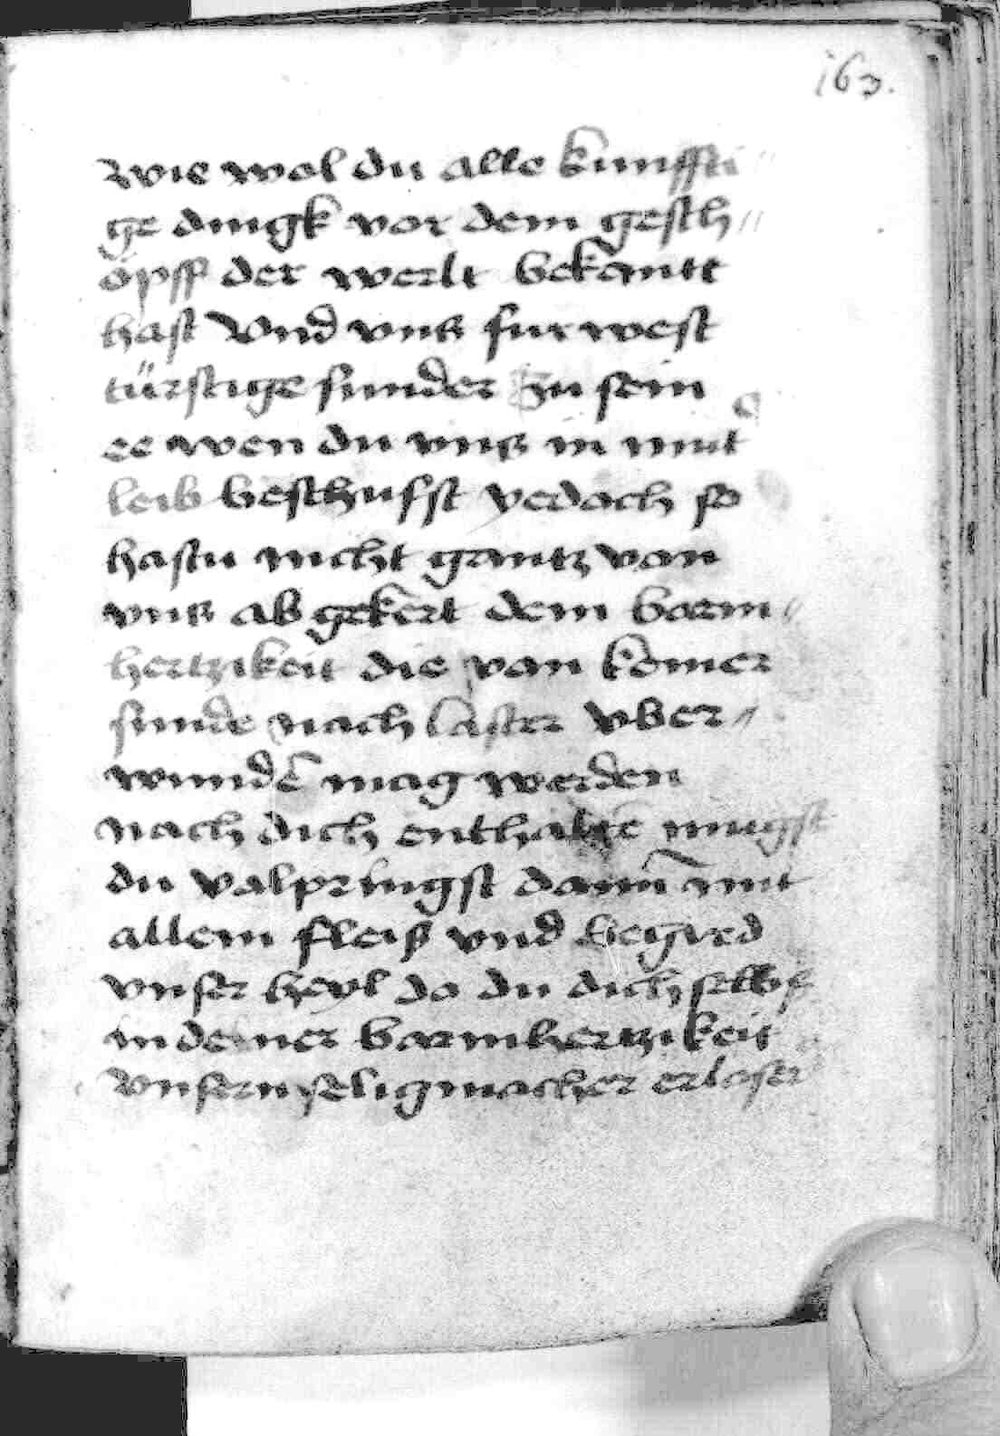 163.
wie wol du alle kunffti
ge dingk vor dem gesch//
öpff der werlt bekantt
hast Vnd vnß fur west
türstige sunder zu sein
ee wen du vnß in mut
leib beschufst yedoch so
hastu nicht gantz von
vnß ab gekert dein barm//
hertzikeit die von keiner
sunde nach laster vber//
wundē mag werden
nach dich enthaltē mugst
du volpringst dann mit
allem fleiß vnd begird
vnser heyl do du dich selbs
in deiner barmhertzikeit
vnsern seligmacher erloser